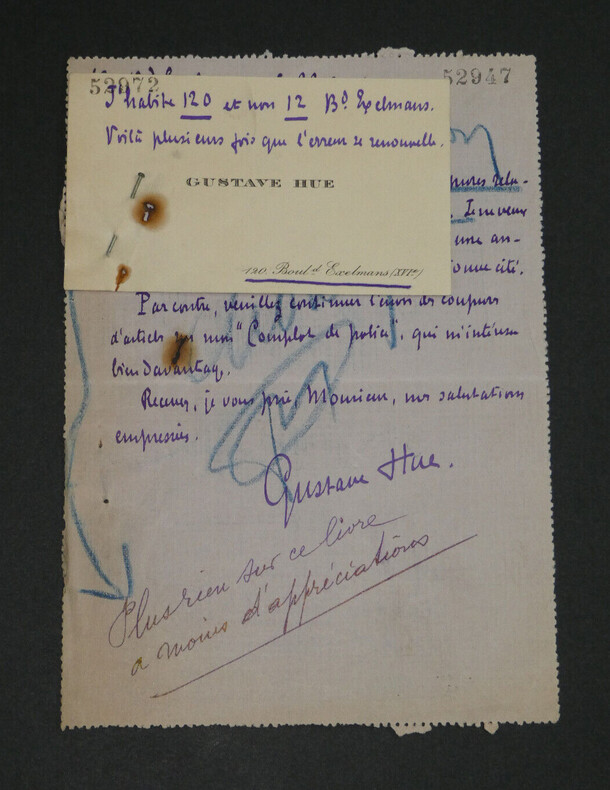 52972
52947
J'habite 120 et non 12 Bd Exelmans.
Voilà plusieurs fois que l'erreur se renouvelle.
GUSTAVE HUE
120. Boul.d Exelmans (XVIe)
Je ne veux
une an-
cité.
Par contre, veuillez continuer l'envoi des coupures
d'articles sur mon "Complot de police", qui m'intéresse
bien davantage.
Recevez, je vous prie, Monsieur, mes salutations
empressées.
Gustave Hue.
Plus rien sur ce livre
a moins d'appréciations